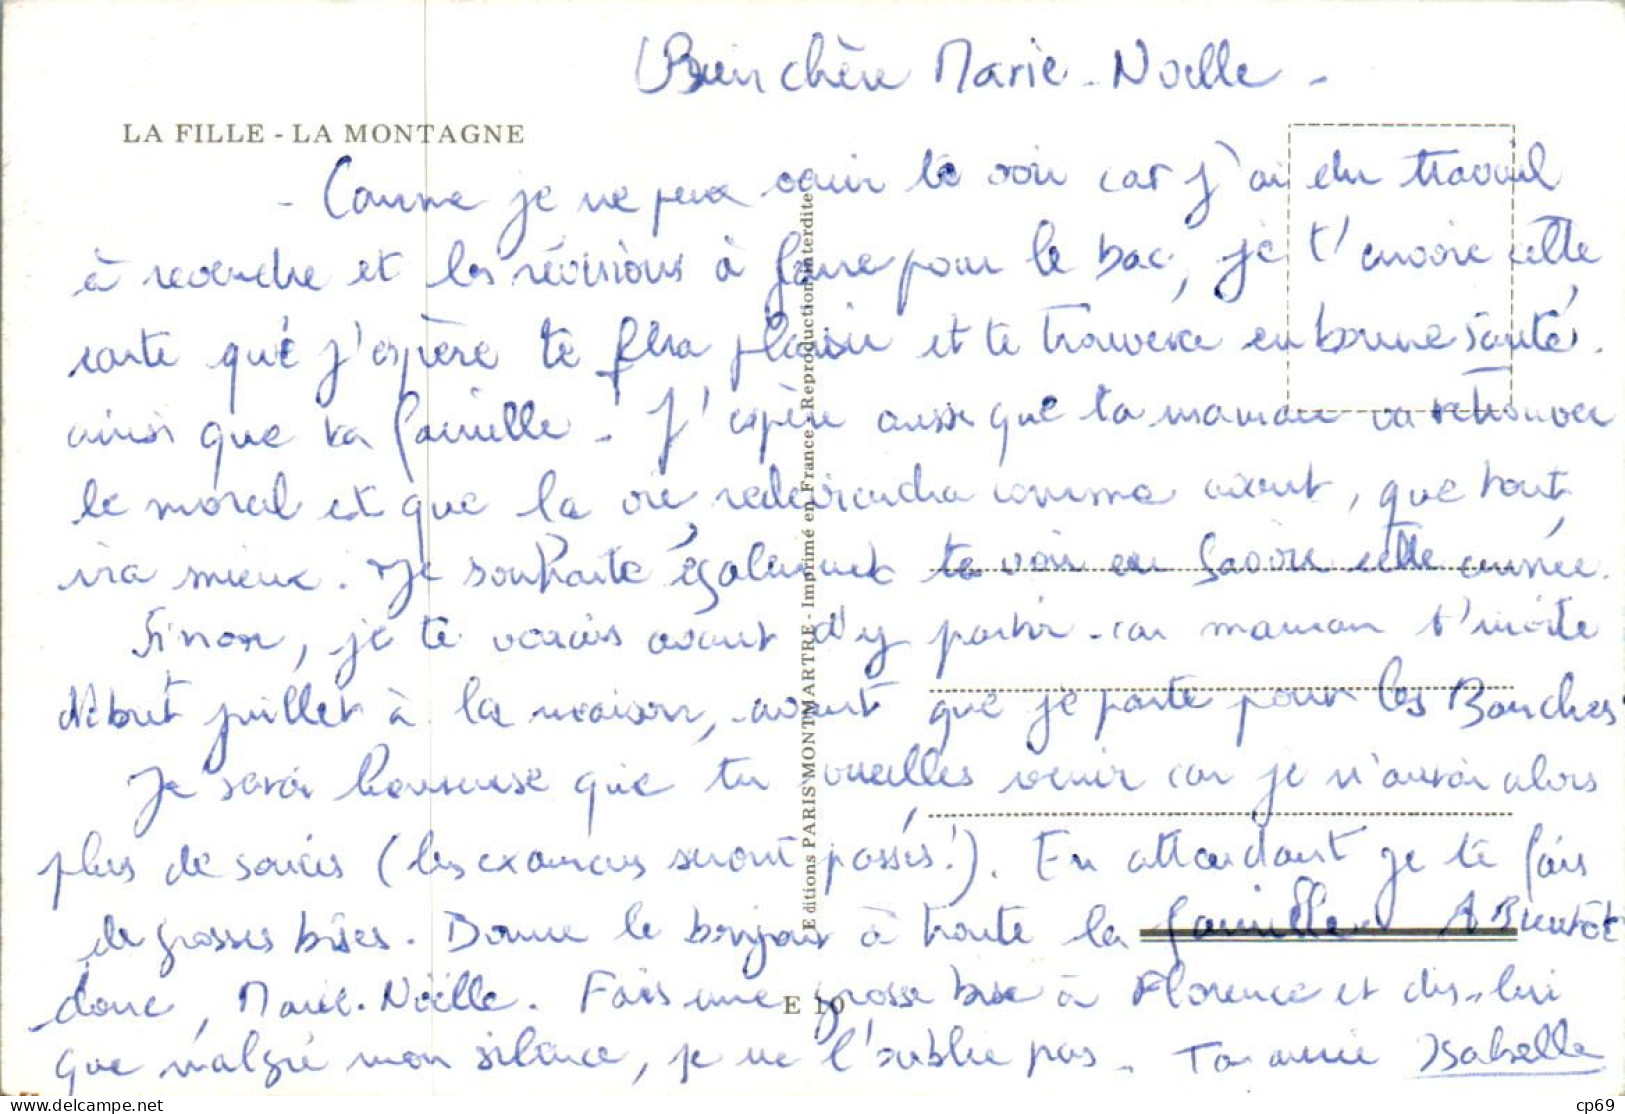 Bien chère Marie-Noëlle -
LA FILLE - LA MONTAGNE
- Comme je ne peux venir te voir car j'ai du travail
à revendre et les révisions à faire pour le bac, je t'envoie cette
carte que j'espère te fera plaisir et te trouvera en bonne santé,
ainsi que ta famille - J'espère aussi que ta maman va retrouver
le moral et que la vie, redeviendra comme avant, que tout
ira mieux. Je souhaite également te voir en Savoie cette année.
Sinon, je te verrais avant d'y partir - car maman t'invite
début juillet à la maison, avant que je parte pour les Bauches
Je serai heureuse que tu veuilles venir car je n'aurai alors
plus de soucis (les examens seront passés!). En attendant je te fais
de grosses bises. Donne le bonjour à toute la famille. A Bientôt
donc, Marie-Noëlle. Fais une grosse bise à Florence et dis-lui
que malgré mon silence, je ne l'oublie pas. Ton amie Isabelle
Editions PARIS MONTMARTRE - Imprimé en France - Reproduction interdite
E 10
cp69